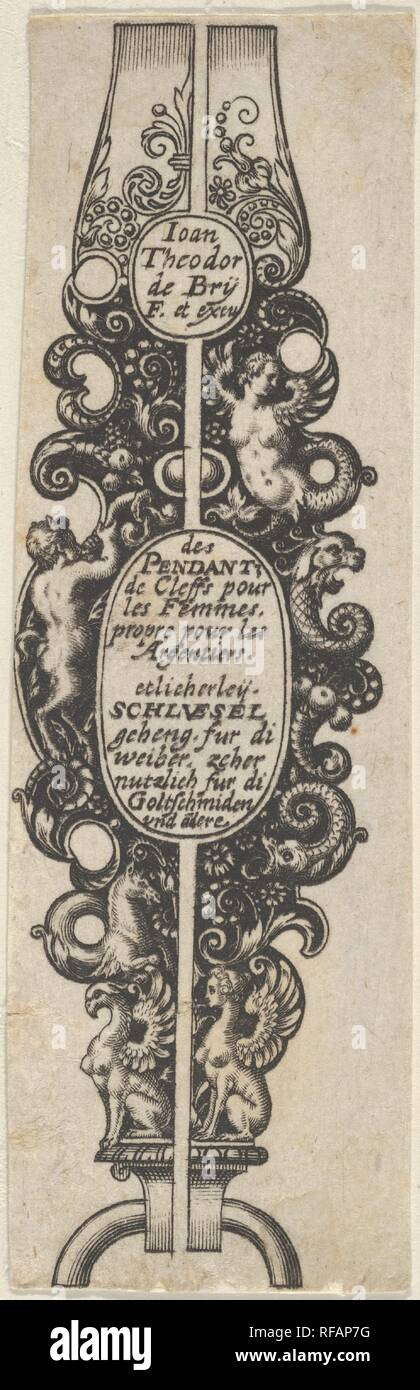 Ioan
Theodor
de Brÿ
F. et excu
des
PENDANT
de Cleffs pour
les Femmes.
propre pour les
Argentiers.
etlicherleÿ.
SCHLVESEL
geheng. fur di
weiber. zcher
nutzlich fur di
Goltschmiden
vnd adere.
alamy
Image ID: RFAP7G
www.alamy.com